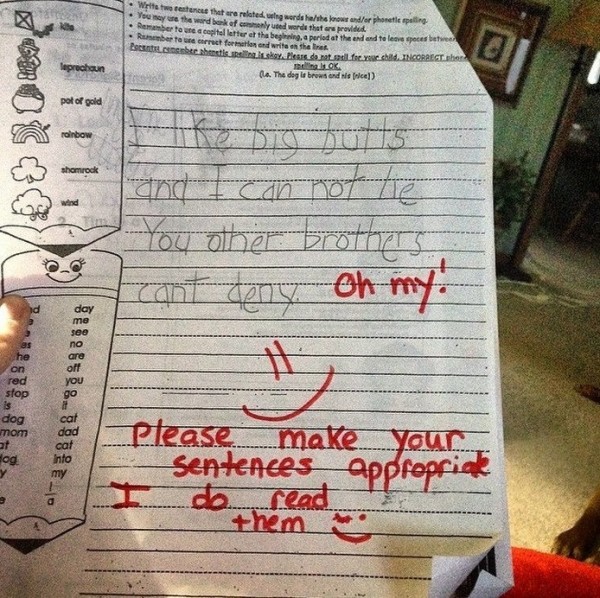 • Write two sentences that are related, using words he/she knows and/or phonetic spelling.
• You may use the word bank of commonly used words that are provided.
• Remember to use a capital letter at the beginning, a period at the end and to leave spaces between
• Remember to use correct formation and write on the lines.
Parents: remember phonetic spelling is okay. Please do not spell for your child. INCORRECT
spelling is OK.
(i.e. The dog is brown and nis [nice].)
kite
leprechaun
pot of gold
rainbow
shamrock
wind
I like big butts
and I can not lie
You other brothers
cant deny.
Oh my!
day
me
see
as no
he are
on off
red you
stop go
is it
dog cat
mom dad
at cat
into
my
I
a
Please make your
sentences appropriate
I do read
them